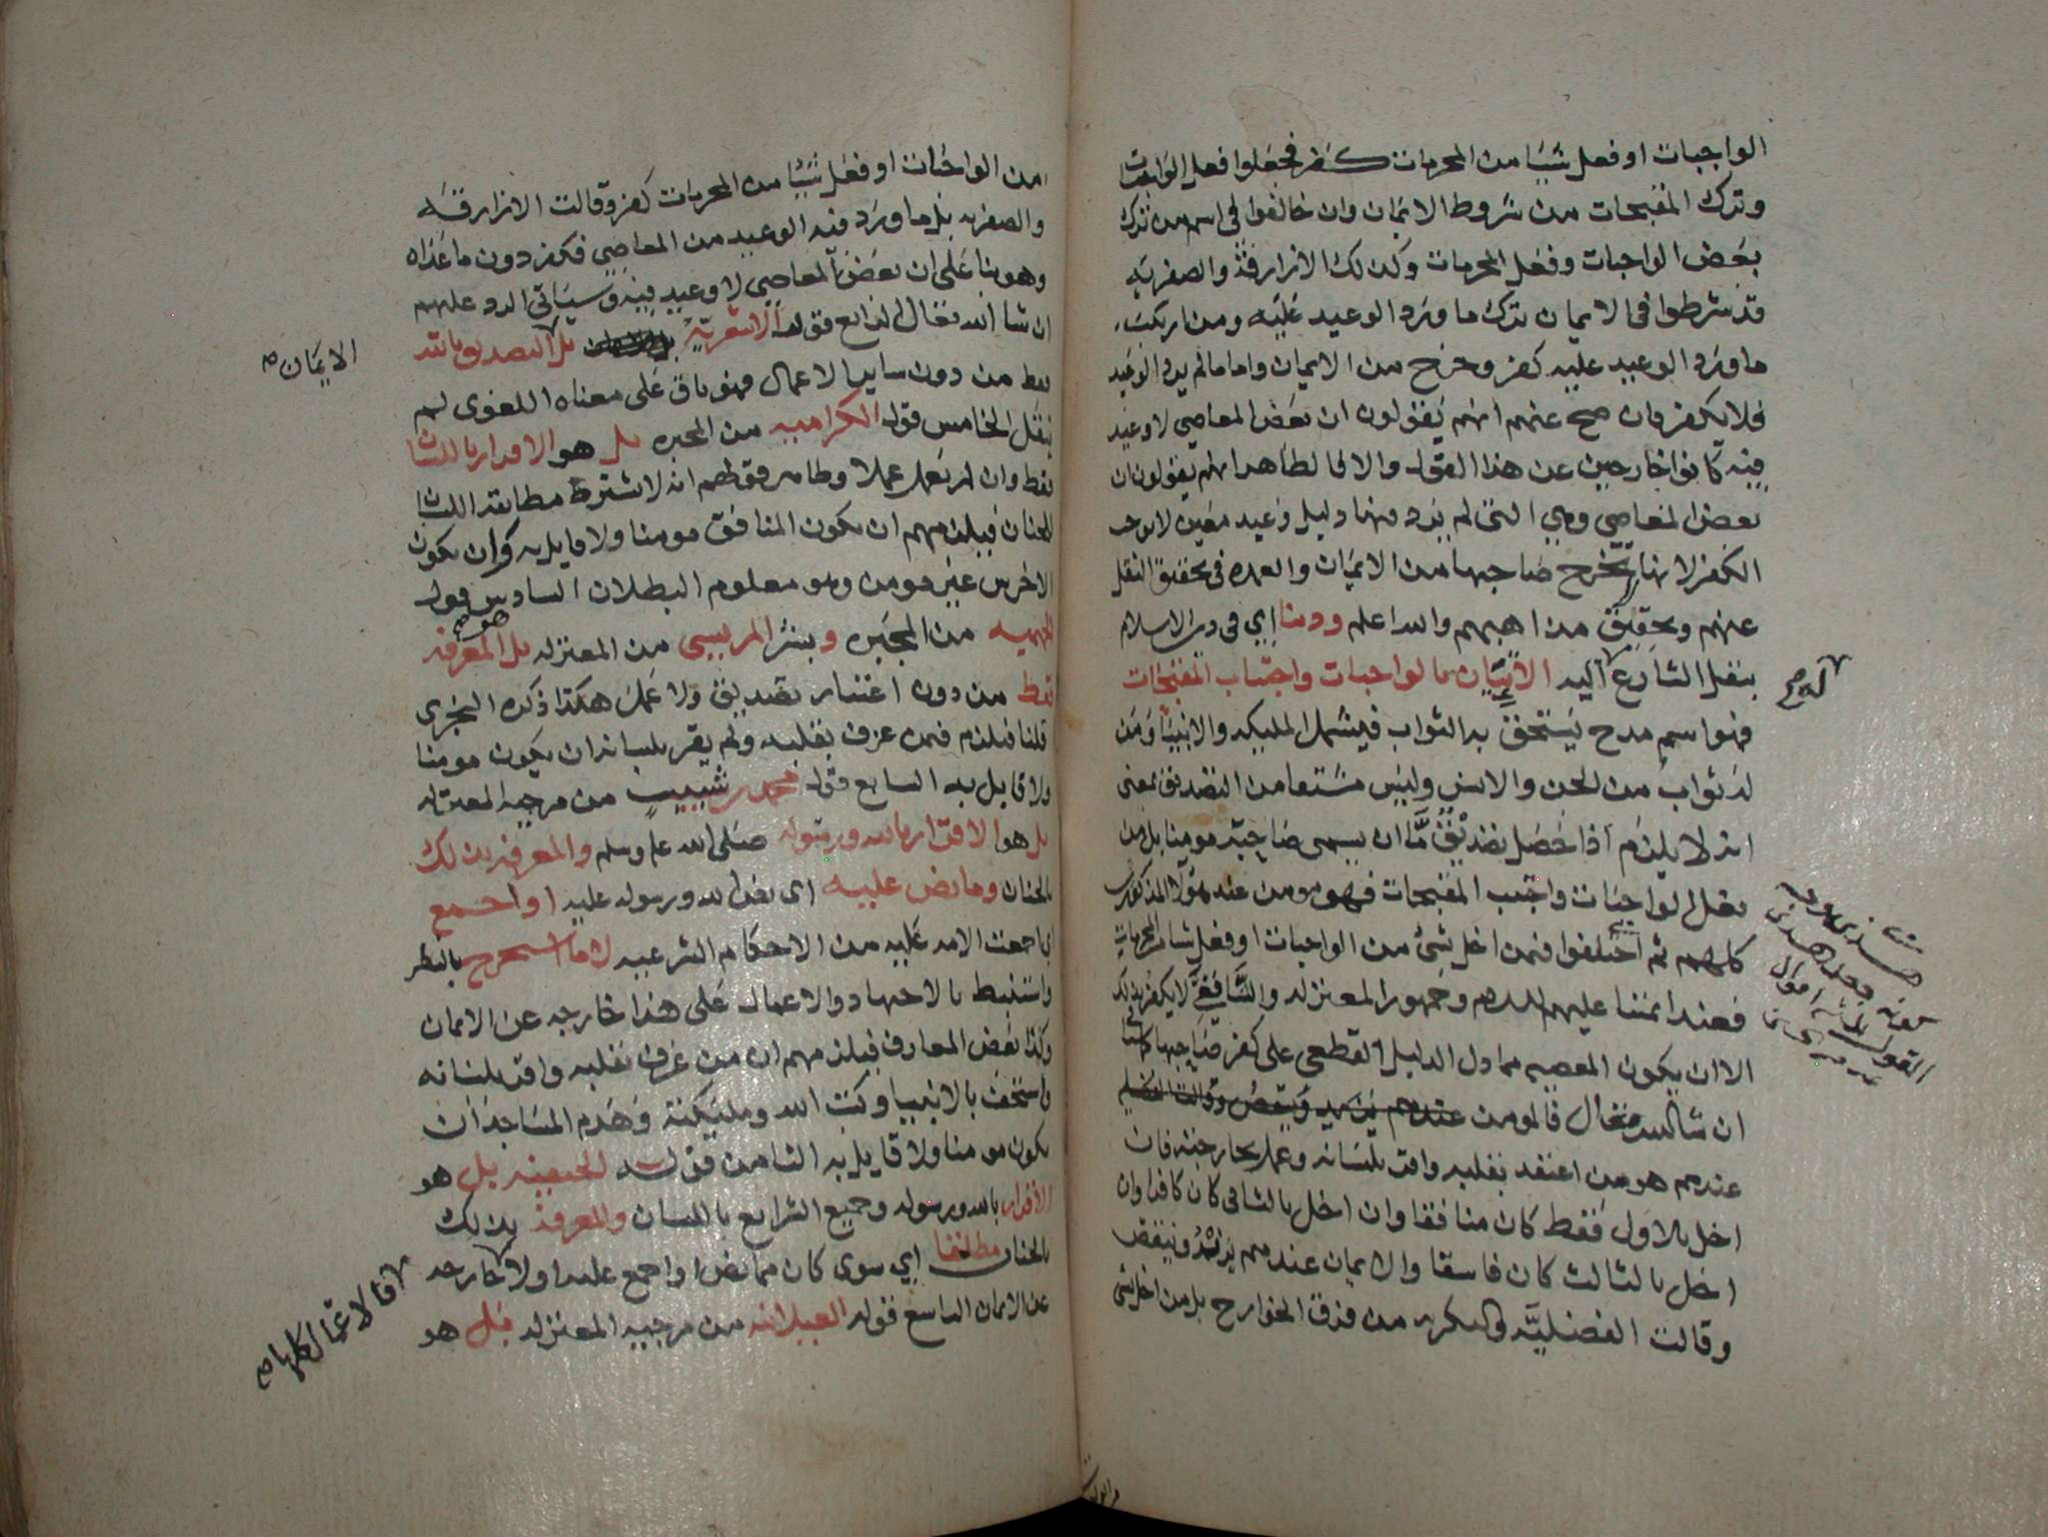 الواجبات او فعل شيئا من المحرمات كفر فجعلوا فعل الواجبات
وترك المقبحات من شروط الايمان وان خالفوا في اسم من ترك
بعض الواجبات وفعل المحرمات وكذلك الازارقة والصفرية
قد شرطوا في الايمان ترك ما ورد الوعيد عليه ومن ارتكب
ما ورد الوعيد عليه كفر وخرج من الايمان واما ما لم يرد الوعيد
فلا يكفر فان صح عنهم انهم يقولون ان بعض المعاصي لا وعيد
فيه كانوا خارجين عن هذا القول والا فالظاهر انهم يقولون ان
بعض المعاصي وهي التي لم يرد فيها دليل وعيد معين لا يوجب
الكفر لا انها تخرج صاحبها من الايمان والعهده في تحقيق النقل
عنهم وتحقيق مذاهبهم والله اعلم ودينا اي في دين الاسلام
بنقل الشارع اليه الاتيان بالواجبات واجتناب المقبحات
فهو اسم مدح يستحق به الثواب فيشمل المليكه والانبيا ومن
له ثواب من الجن والانس وليس مشتقا من التصديق بمعنى
انه لا يلزم اذا حصل تصديق ما ان يسمى صاحبه مومنا بل من
فعل الواجبات واجتنب المقبحات فهو مومن عند هؤلا المذكورين
كلهم ثم اختلفوا فيمن اخل بشئ من الواجبات او فعل شيئا من المحرمات
فعند ائمتنا عليهم السلام وجمهور المعتزله والشافعي لا يكفر بذلك
الا ان يكون المعصيه مما دل الدليل القطعي على كفر صاحبها كما
ان شا الله تعالى فالمومن
عندهم هو من اعتقد بقلبه واقر بلسانه وعمل بجارحته فان
اخل بالاول فقط كان منافقا وان اخل بالثاني كان كافرا وان
اخل بالثالث كان فاسقا والايمان عندهم يزيد وينقص
وقالت الفضلية والبكريه من فرق الخوارج بل من اخل بشي
من الواجبات او فعل شيئا من المحرمات كفر وقالت الازارقه
والصفريه بل ما ورد فيه الوعيد من المعاصي فكفر دون ما عداه
وهو بنا على ان بعض المعاصي لا وعيد فيه وسياتي الرد عليهم
ان شا الله تعالى الرابع قول الاشعرية بل التصديق بالله
الايمان صح
فقط من دون ساير الاعمال فهو باق على معناه اللغوي لم
ينقل الخامس قول الكراميه من المجبره بل هو الاقرار باللسان
فقط وان لم يعمل عملا وظاهر قولهم انه لا يشترط مطابقه اللسان
للجنان فيلزمهم ان يكون المنافق مومنا ولا قايل به وان يكون
الاخرس غير مومن وهو معلوم البطلان السادس قول
الجهميه من المجبره وبشر المريسي من المعتزله بل هو المعرفة
فقط من دون اعتبار تصديق ولا عمل هكذا ذكره النجري
قلنا فيلزم فيمن عرف بقلبه ولم يقر بلسانه ان يكون مومنا
ولا قايل به السابع قول محمد بن شبيب من مرجيه المعتزله
بل هو الاقرار بالله ورسوله صلى الله عليه وسلم والمعرفة بذلك
بالجنان وما نص عليه اي نص الله ورسوله عليه او اجمع
اي اجمعت الامه عليه من الاحكام الشرعيه لا ما استخرج بالنظر
واستنبط بالاجتهاد والاعمال على هذا خارجه عن الايمان
وكذا بعض المعارف فيلزمهم ان من عرف بقلبه واقر بلسانه
واستخف بالانبيا وكتب الله ومليكته وهدم المساجد ان
يكون مومنا ولا قايل به الثامن قول بل هو
الاقرار بالله ورسوله وجميع الشرايع باللسان والمعرفة بذلك
بالجنان مطلقا اي سوى كان مما نص او اجمع عليه اولا خارجه
فالاعمال كلها صح
عن الايمان التاسع قول العبيدانه من مرجيه المعتزله بل هو